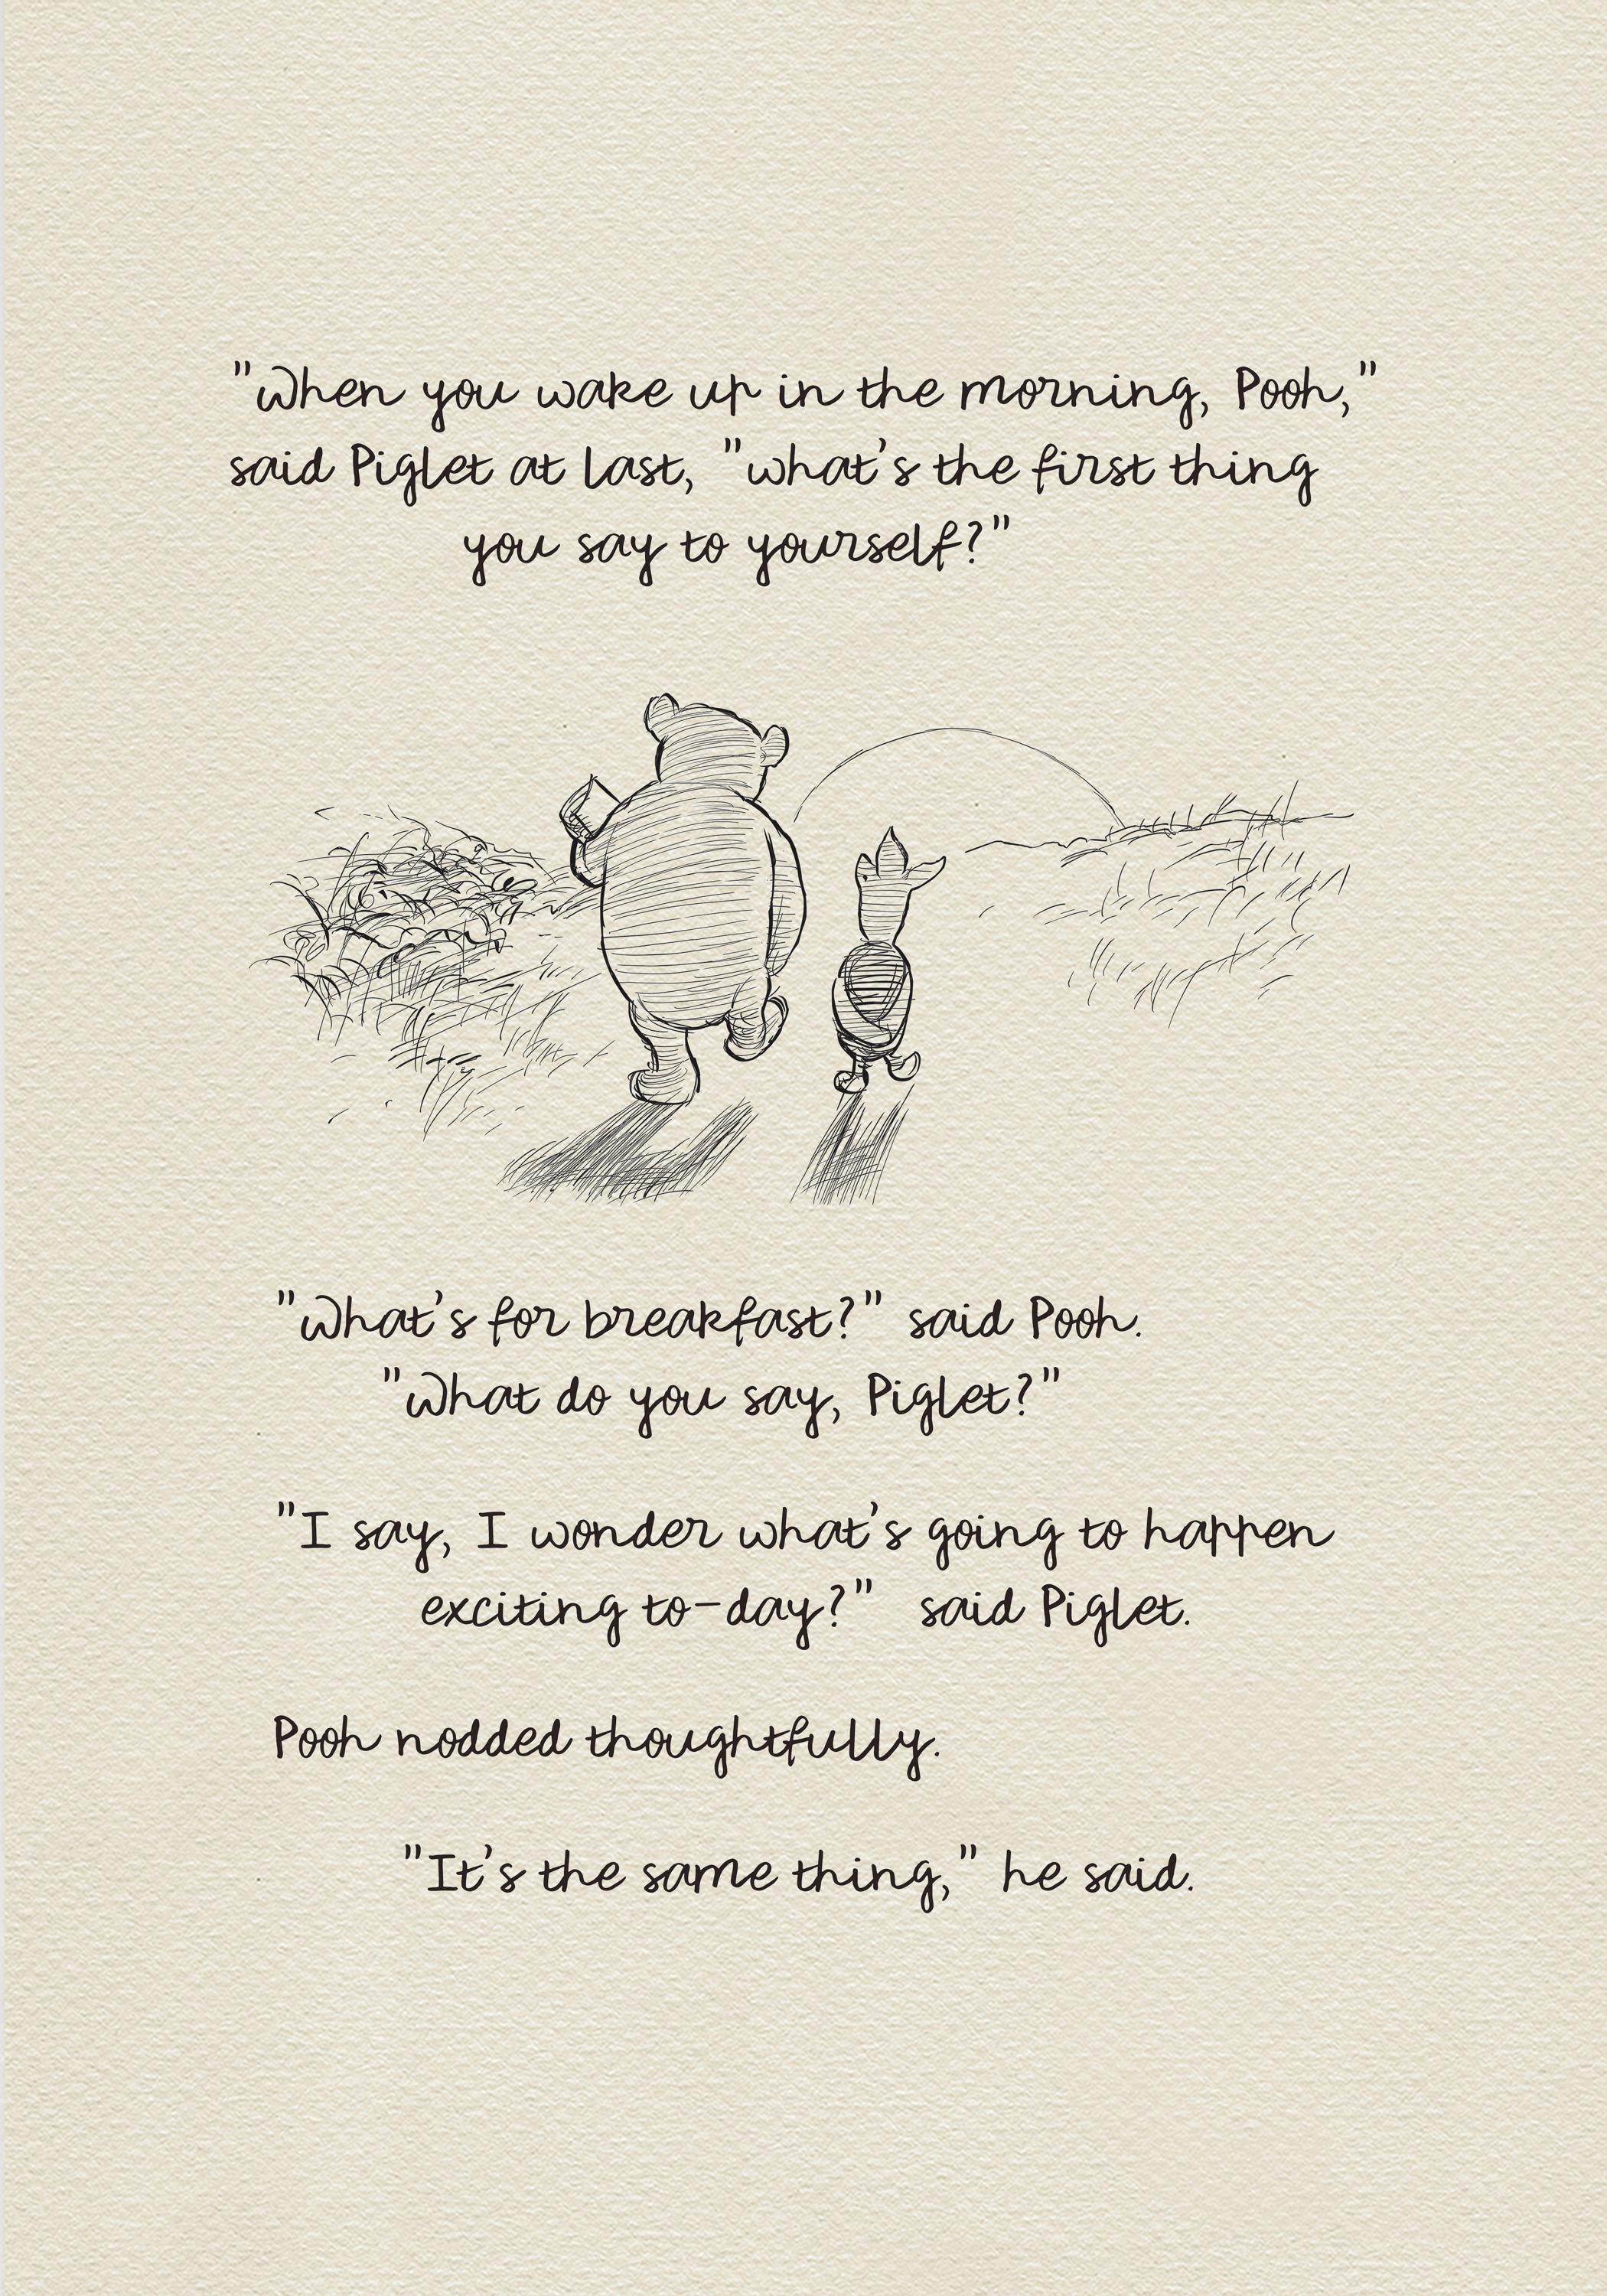 "When you wake up in the morning, Pooh,"
said Piglet at last, "what's the first thing
you say to yourself?"
"What's for breakfast?" said Pooh.
"What do you say, Piglet?"
"I say, I wonder what's going to happen
exciting to-day?" said Piglet.
Pooh nodded thoughtfully.
"It's the same thing," he said.